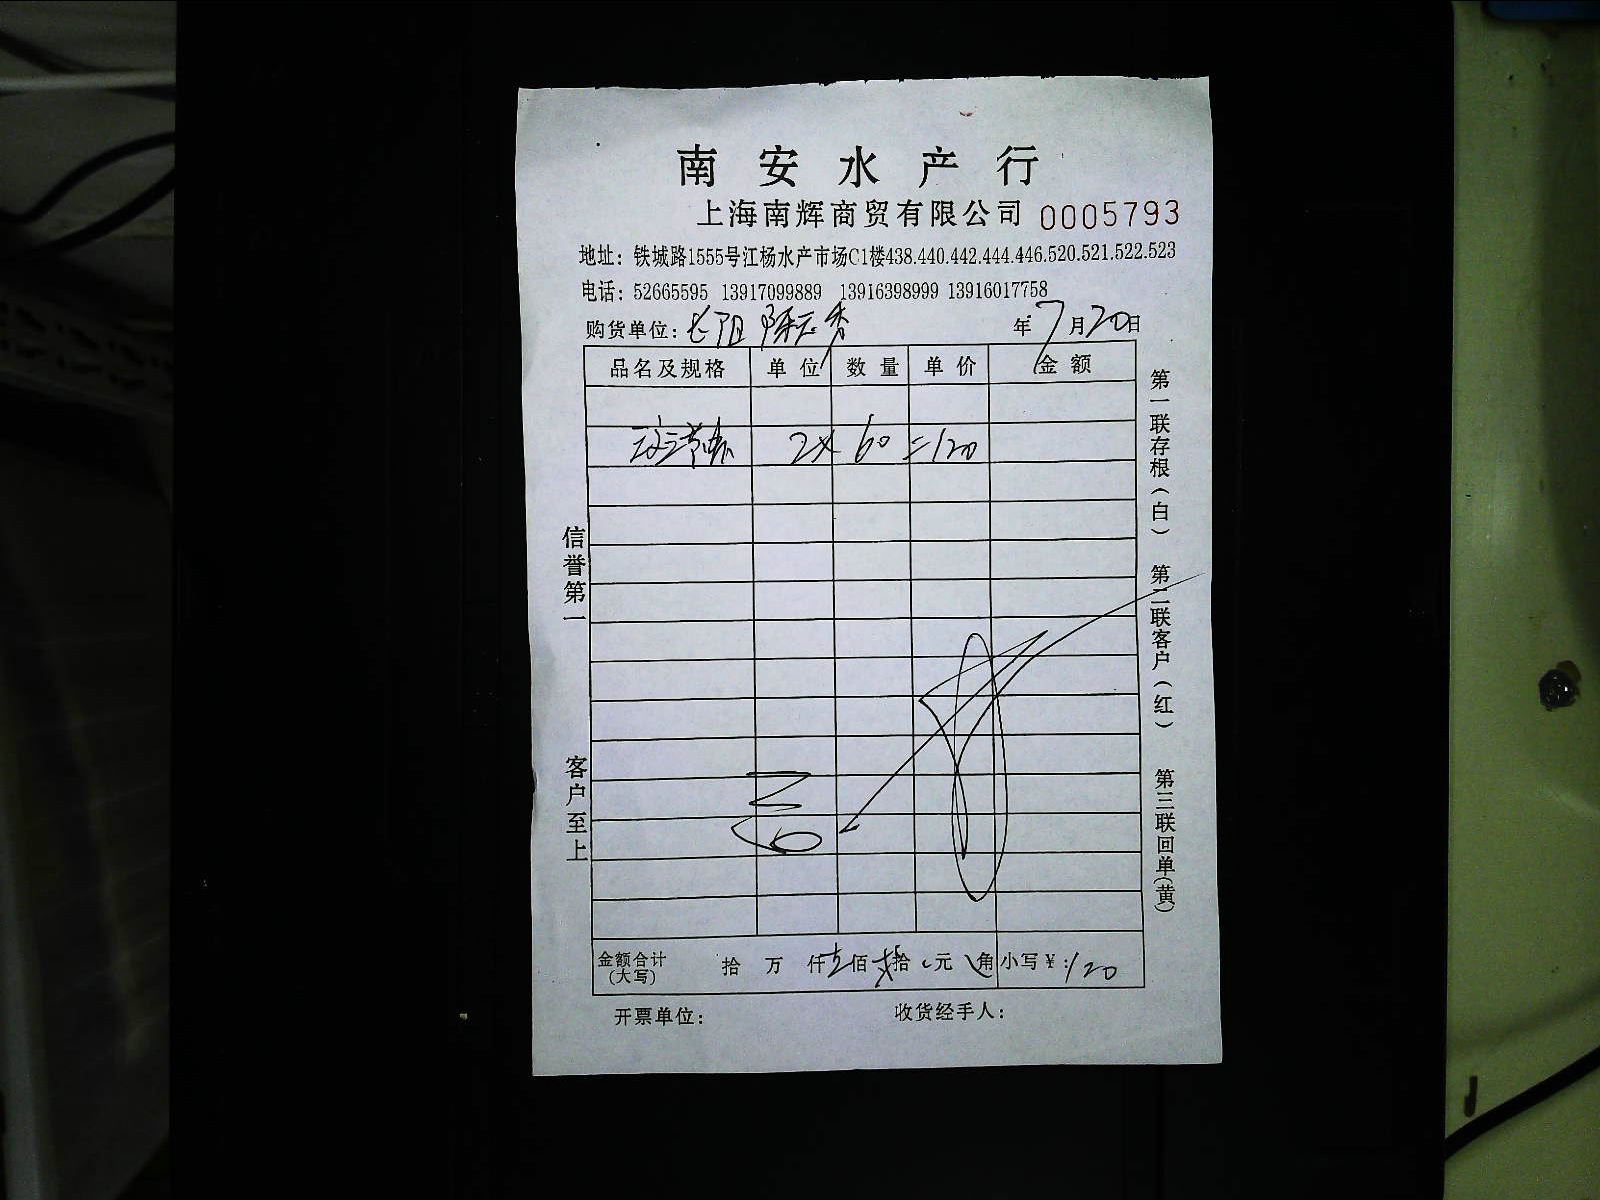 南安水产行
上海南辉商贸有限公司 0005793
地址：铁城路1555号江杨水产市场C1楼438.440.442.444.446.520.521.522.523
电话：52665595 13917099889 13916398999 13916017758
购货单位： 年 7月20日
品名及规格 单位 数量 单价 金额
2× 60 =120
信誉第一
客户至上
第一联存根（白）
第二联客户（红）
第三联回单（黄）
金额合计（大写） 拾 万 仟 壹佰 贰拾 元 角 小写￥：120
开票单位： 收货经手人：